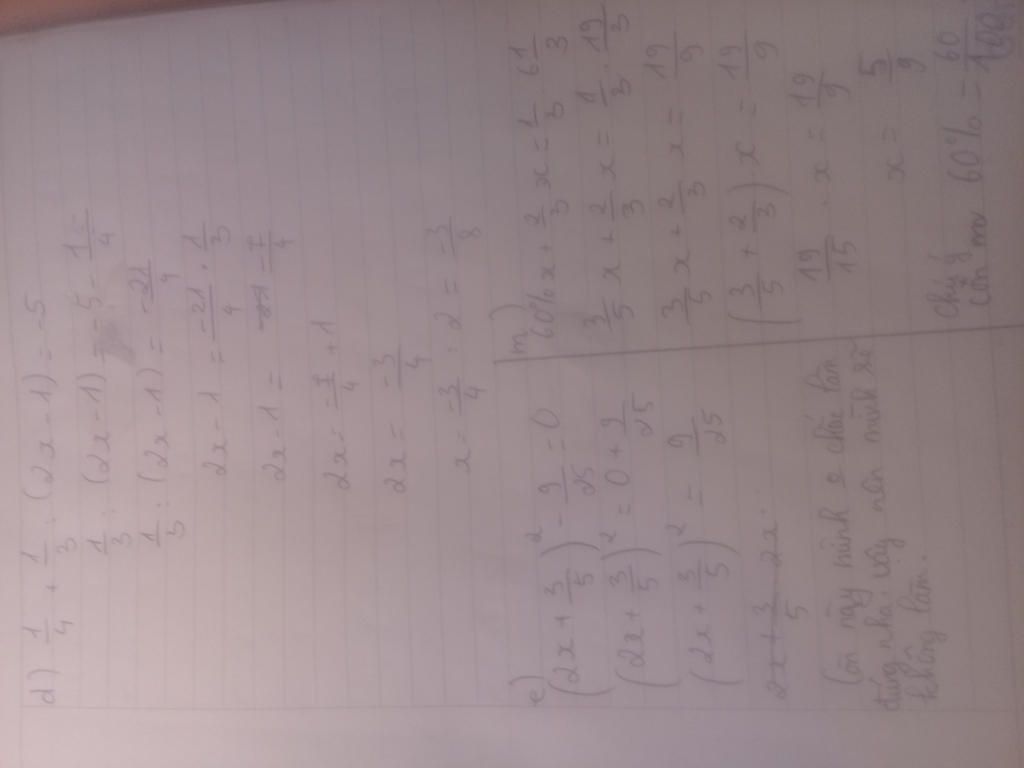 d) 1/4 + 1/3 : (2x - 1) = -5
1/3 : (2x - 1) = -5 - 1/4
1/3 : (2x - 1) = -21/4
2x - 1 = -21/4 . 1/3
2x - 1 = -7/4
2x = -7/4 + 1
2x = -3/4
x = -3/4 : 2 = -3/8
e)
(2x + 3/5)² - 9/25 = 0
(2x + 3/5)² = 0 + 9/25
(2x + 3/5)² = 9/25
2x + 3/5 2x.
Còn này mình k chắc làm
đúng nha. vậy nên mình sẽ
không làm.
m)
60% x + 2/3 x = 1/3 6 1/3
3/5 x + 2/3 x = 1/3 . 19/3
3/5 x + 2/3 x = 19/9
(3/5 + 2/3) . x = 19/9
19/15 . x = 19/9
x = 5/9
chú ý
60% = 60/100